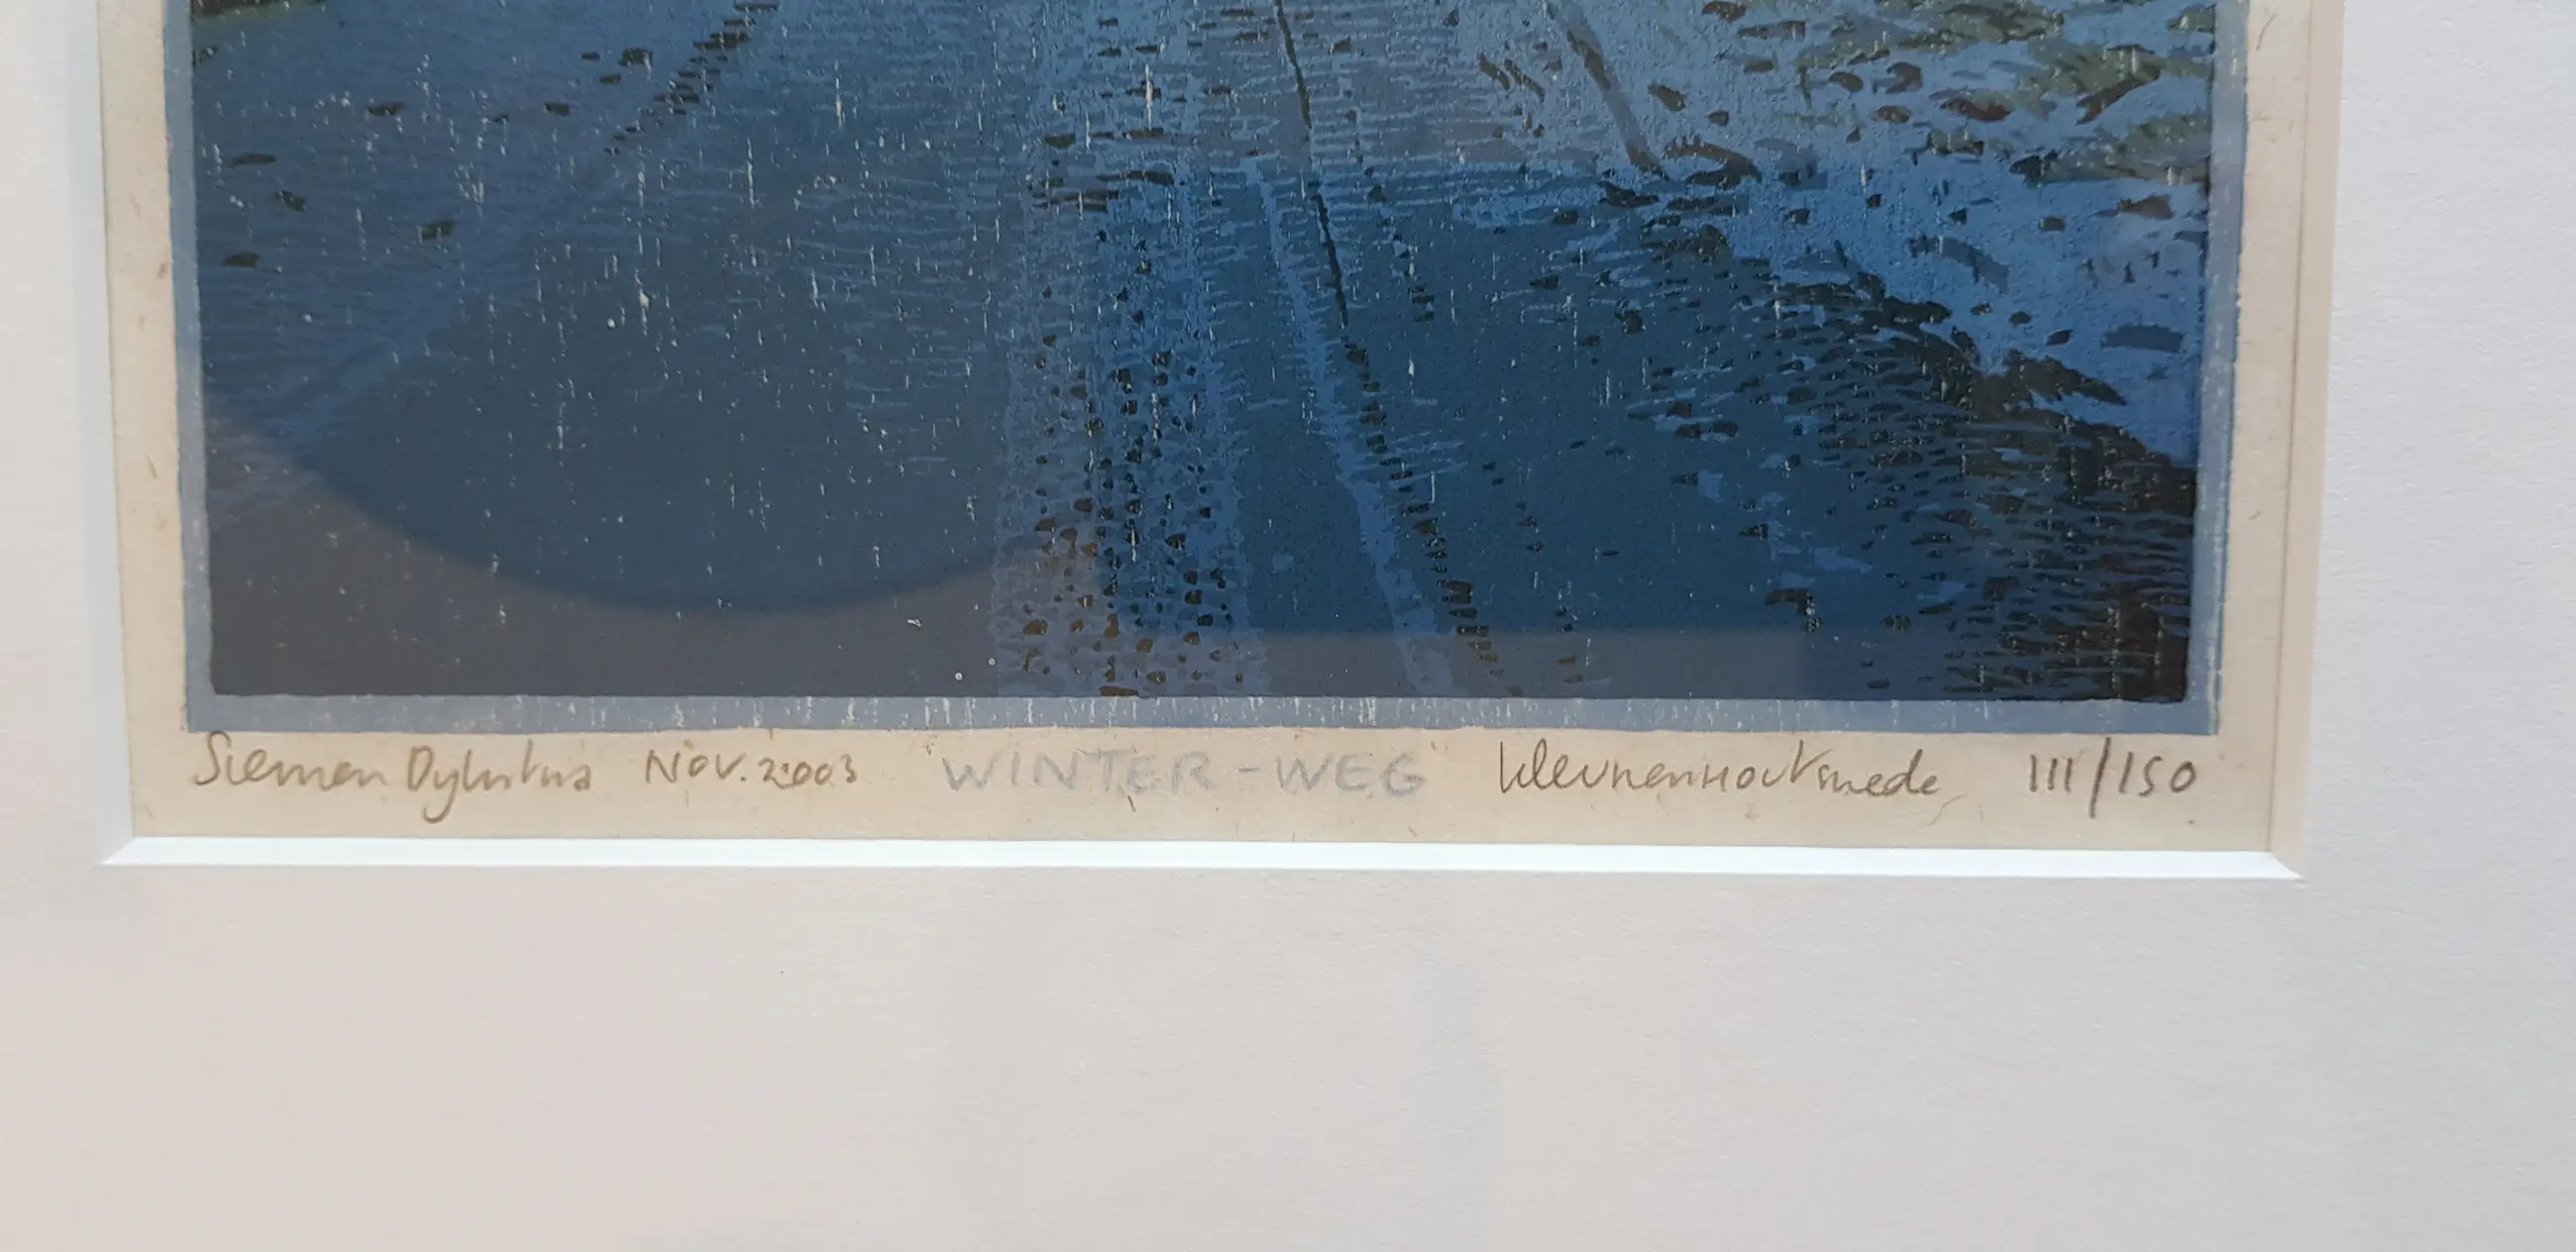 Siemen Dijkstra Nov. 2003 "WINTER-WEG" kleurenhoutsnede 111/150